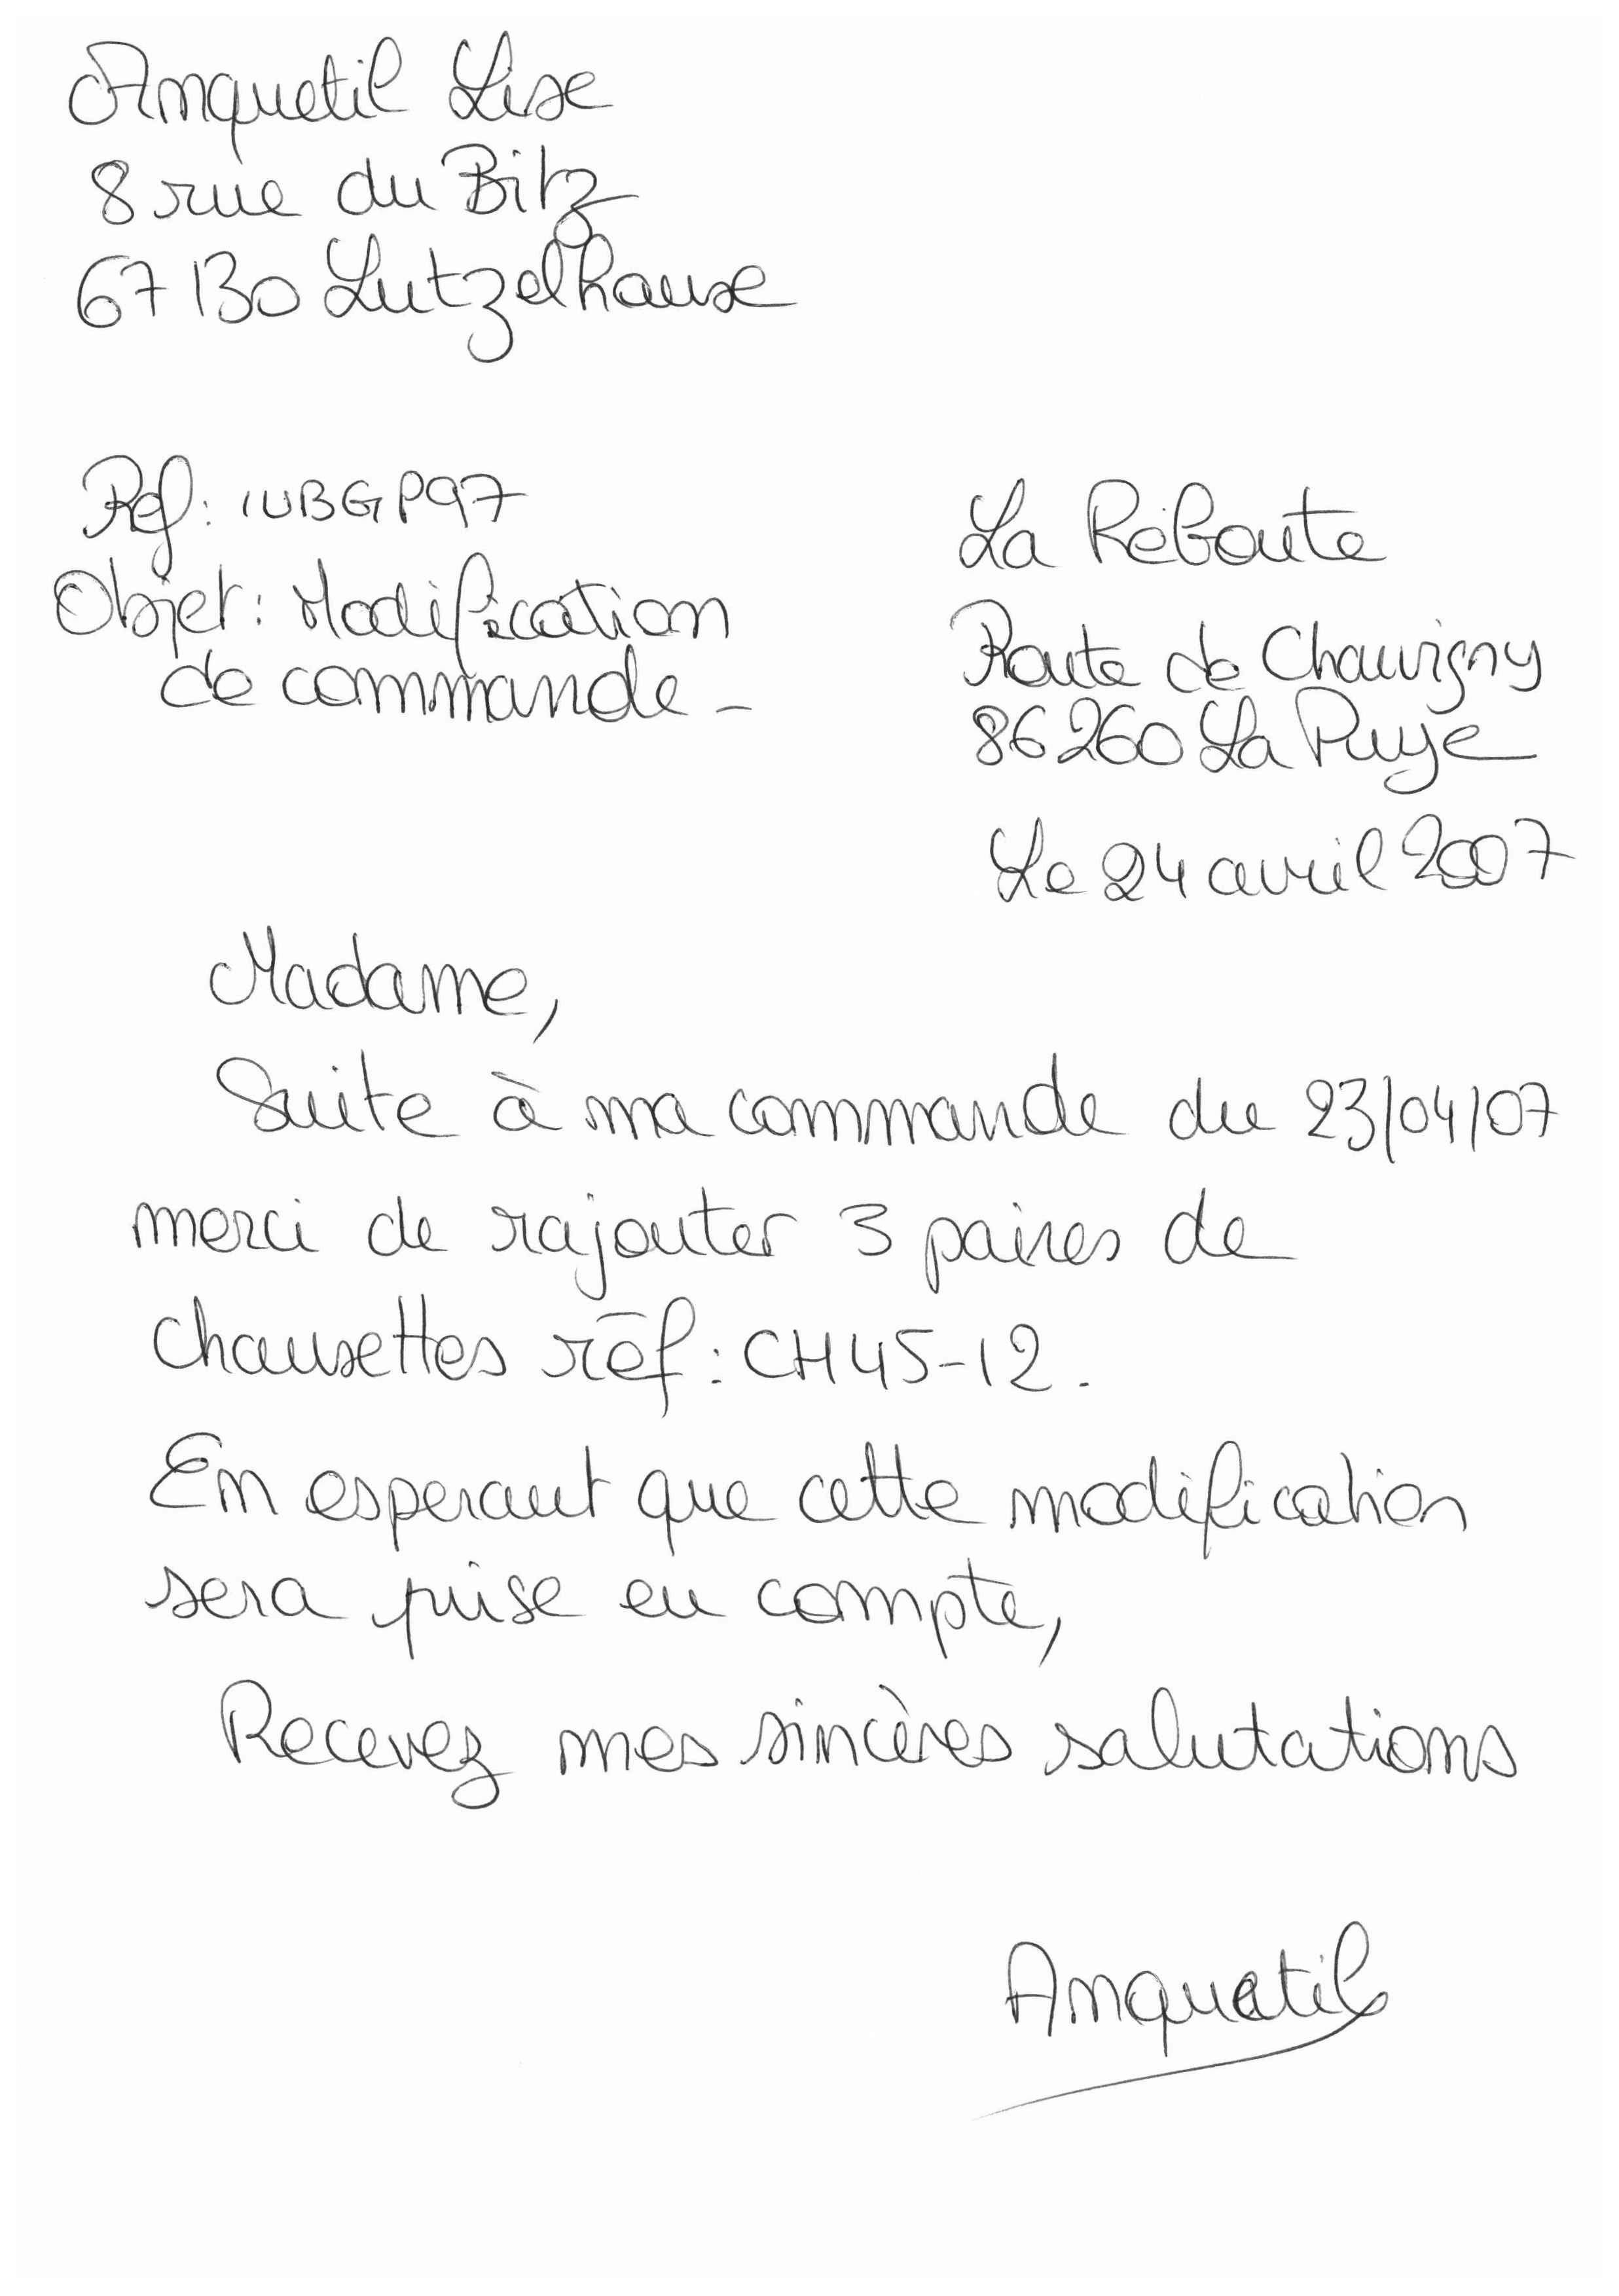 Anquetil Lise
8 rue du Bitz
67130 Lutzelhouse
Ref: IUBGP97
Objet: Modification
de commande -
La Réboute
Route de Chauvigny
86260 La Puye
Le 24 avril 2007
Madame,
Suite à ma commande du 23/04/07
merci de rajouter 3 paires de
chaussettes réf: CH45-12.
En esperant que cette modification
sera prise en compte,
Recevez mes sincères salutations
Anquetil